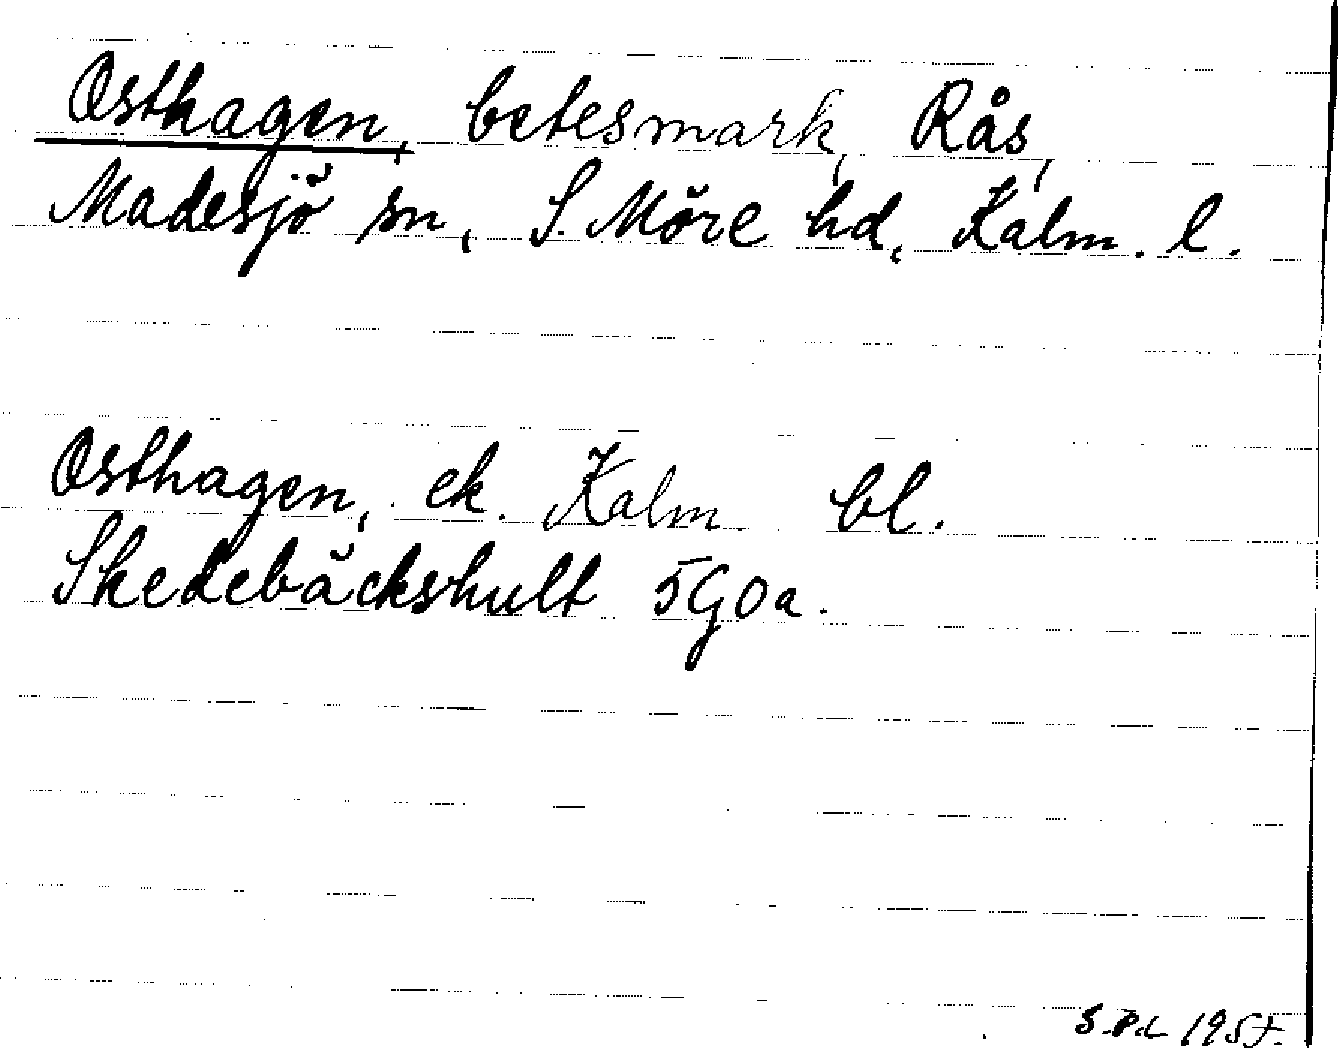 Osthagen, betesmark, Rås,
Madesjö sn, S. Möre hd, Kalm. l.
Osthagen, ek. Kalm bl.
Skedebäckshult 5G0a.
1957.